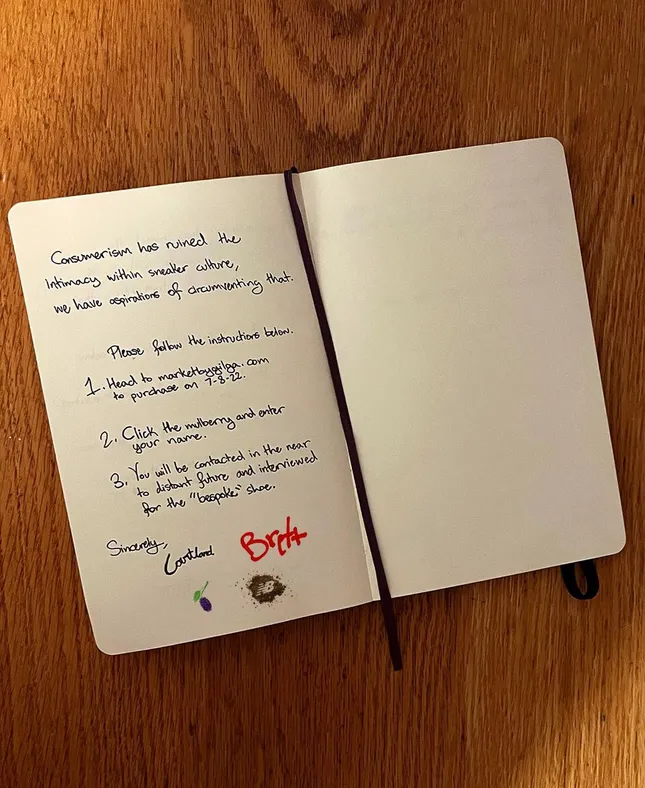 Consumerism has ruined the
Intimacy within sneaker culture,
we have aspirations of circumventing that.
Please follow the instructions below.
1. Head to marketbygilga.com
to purchase on 7-8-22.
2. Click the mulberry and enter
your name.
3. You will be contacted in the near
to distant future and interviewed
for the "bespoke" shoe.
Sincerely,
Courtland
Brett